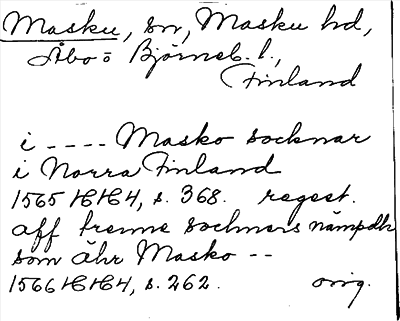 Masku, sn, Masku hd,
Åbo o Björneb. l.,
Finland
i ---- Masko socknar
i Norra Finland
1565 HH4, s. 368. regest.
aff trenne sochners nämpdh
som ähr Masko --
1566 HH4, s. 262. orig.